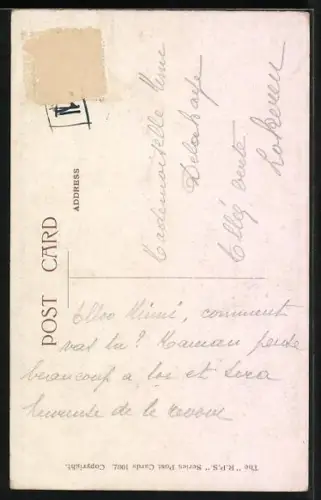 POST CARD
ADDRESS
Mademoiselle Mimi
Delahaye
Collég verte
Lokeren
Allo Mimi, comment
vas tu? Maman pense
beaucoup a toi et sera
heureuse de te revoir
The "R.P.S." Series Post Cards 1002. Copyright.